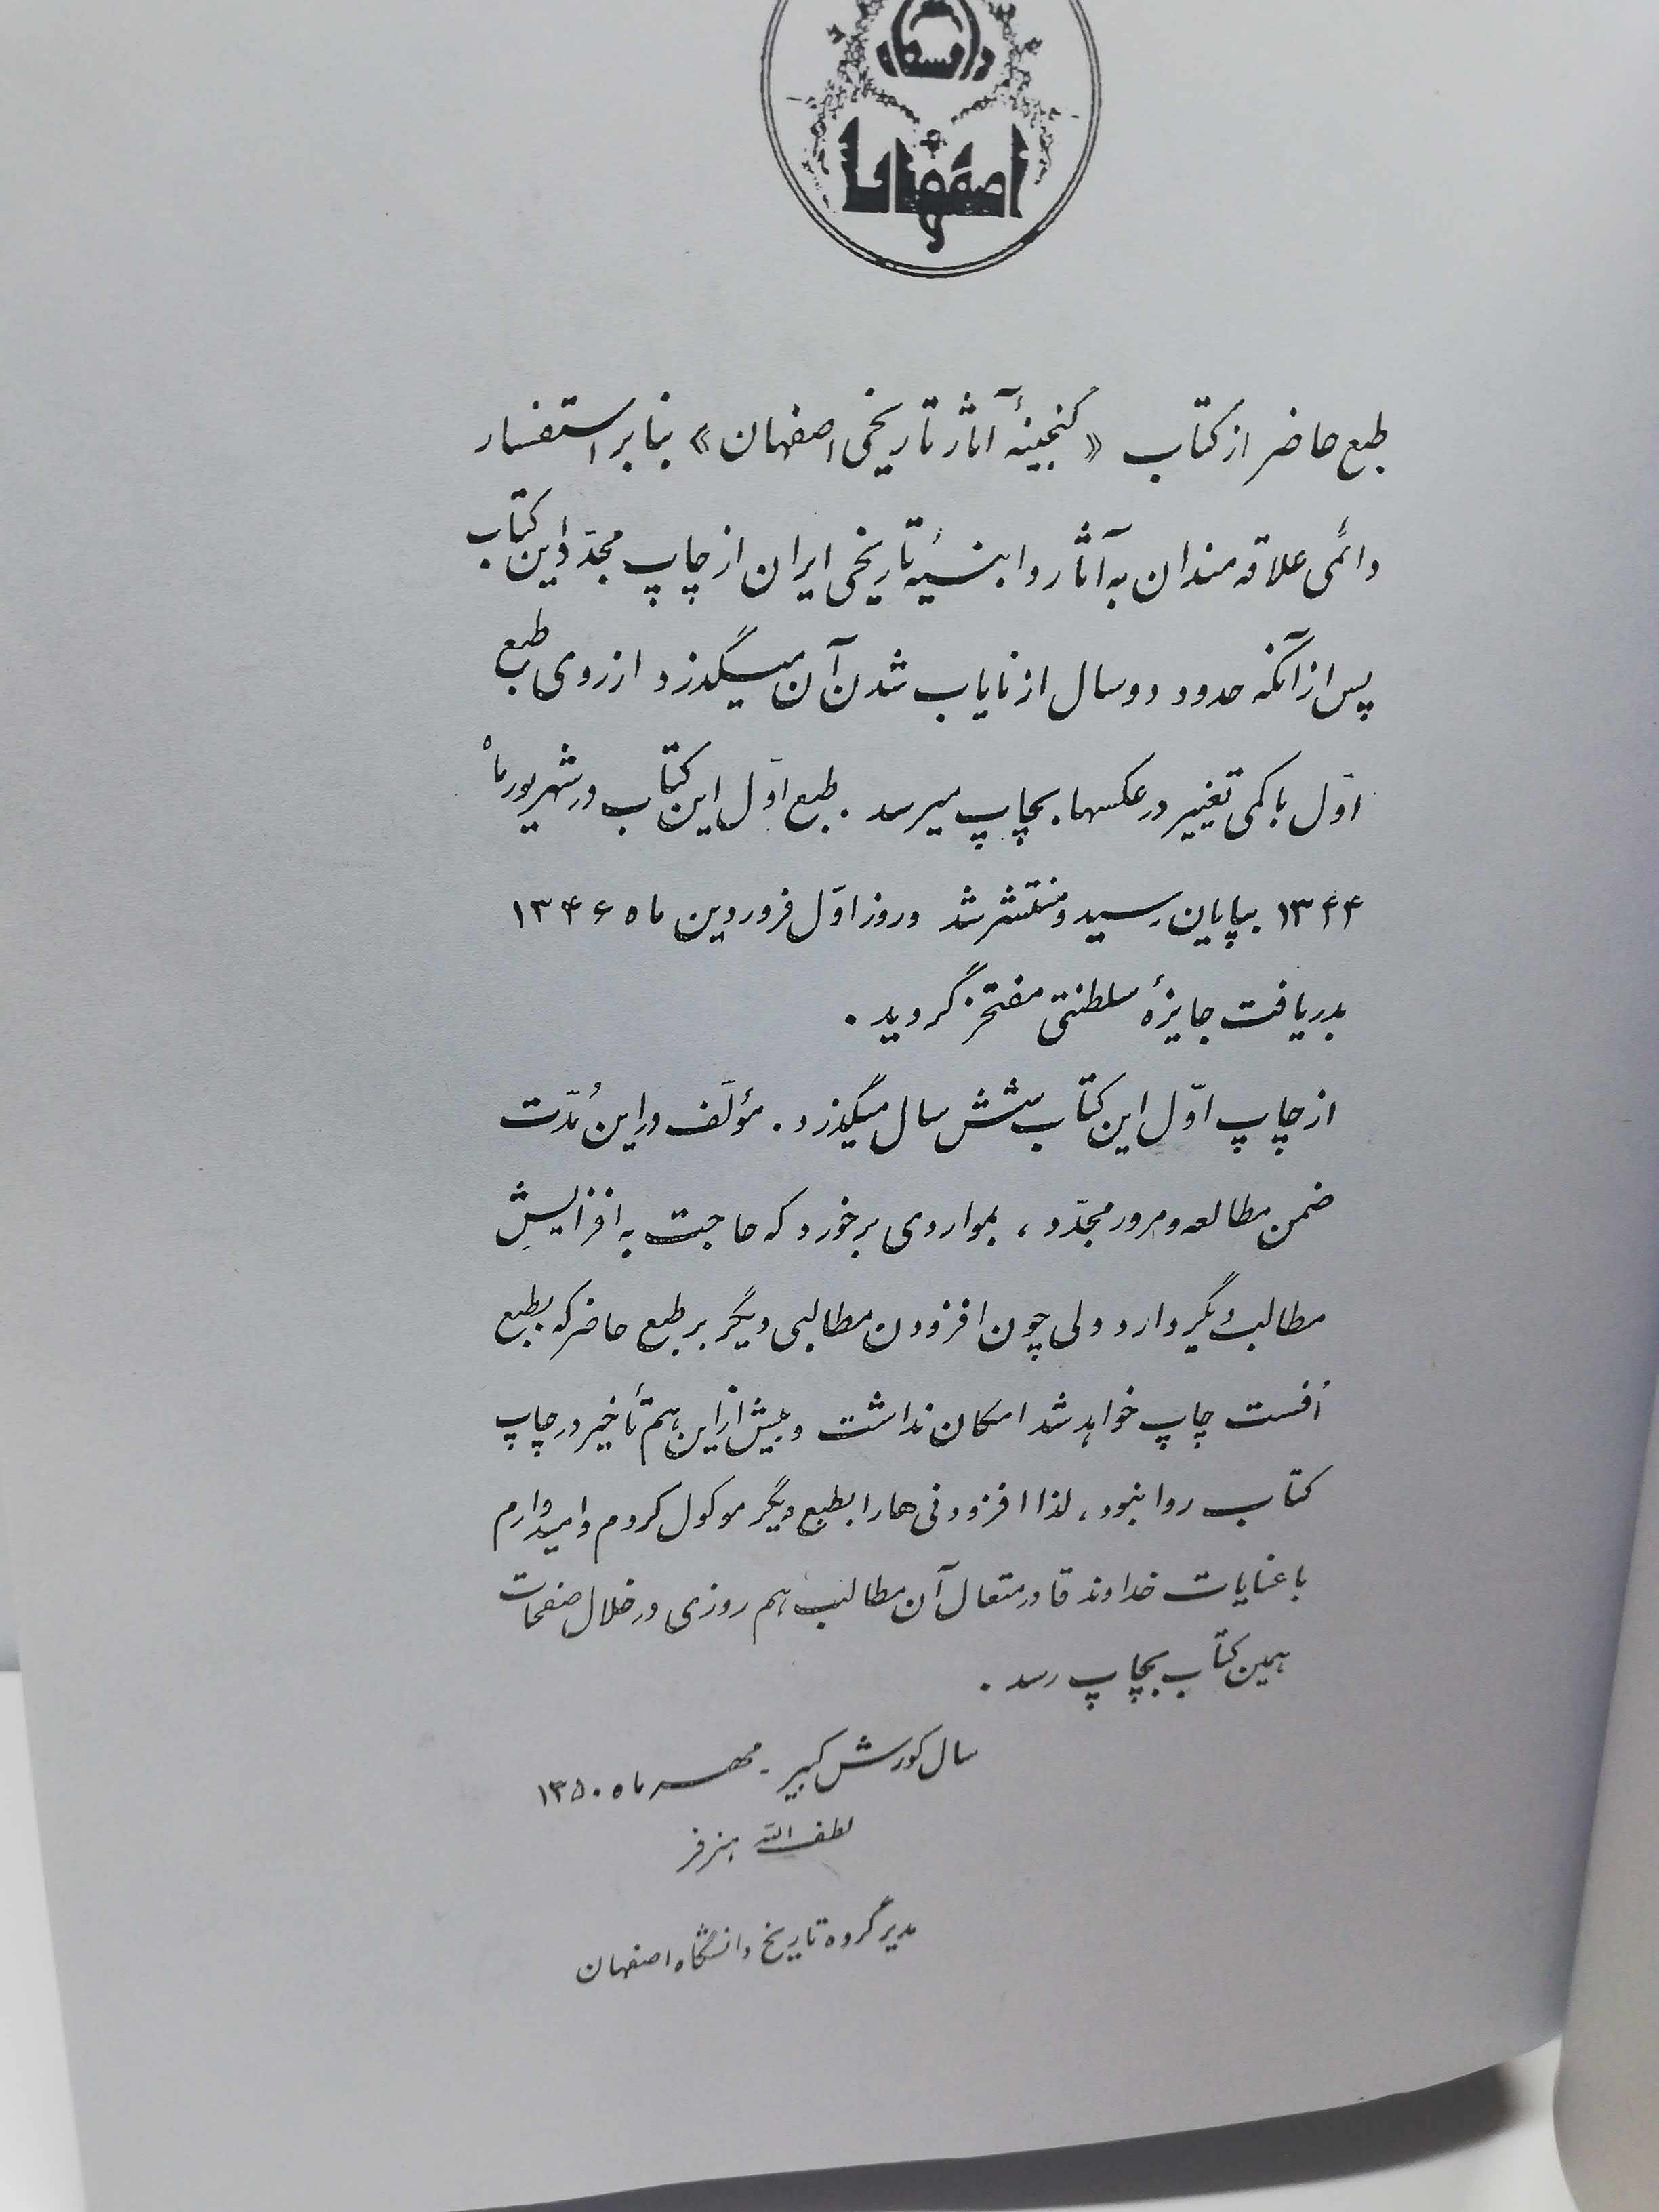 دانشگاه
اصفهان
طبع حاضر از کتاب «گنجینهٔ آثار تاریخی اصفهان» بنا بر استفسار
دائمی علاقه‌مندان به آثار و ابنیهٔ تاریخی ایران از چاپ مجدّد این کتاب
پس از آنکه حدود دو سال از نایاب شدن آن میگذرد از روی طبع
اوّل با کمی تغییر در عکسها بچاپ میرسد . طبع اوّل این کتاب در شهریور ماه
۱۳۴۴ بپایان رسید و منتشر شد و روز اوّل فروردین ماه ۱۳۴۶
بدریافت جایزهٔ سلطنتی مفتخر گردید .
از چاپ اوّل این کتاب شش سال میگذرد . مؤلّف در این مُدّت
ضمن مطالعه و مرور مجدّد ، بمواردی برخورد که حاجت به افزایشِ
مطالب دیگر دارد ولی چون افزودن مطالبی دیگر بر طبع حاضر که بطبع
اُفست چاپ خواهد شد امکان نداشت و بیش از این هم تأخیر در چاپ
کتاب روا نبود ، لذا افزودنی‌ها را بطبع دیگر موکول کردم و امیدوارم
با عنایات خداوند قادر متعال آن مطالب هم روزی در خلال صفحات
همین کتاب بچاپ رسد .
سال کورش کبیر - مهر ماه ۱۳۵۰
لطف الله هنرفر
مدیر گروه تاریخ دانشگاه اصفهان